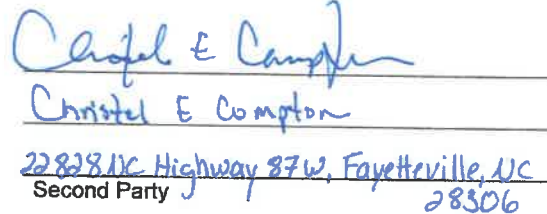 Christel E Compton
Christel E Compton
22828 NC Highway 87 W, Fayetteville, NC
Second Party 28306